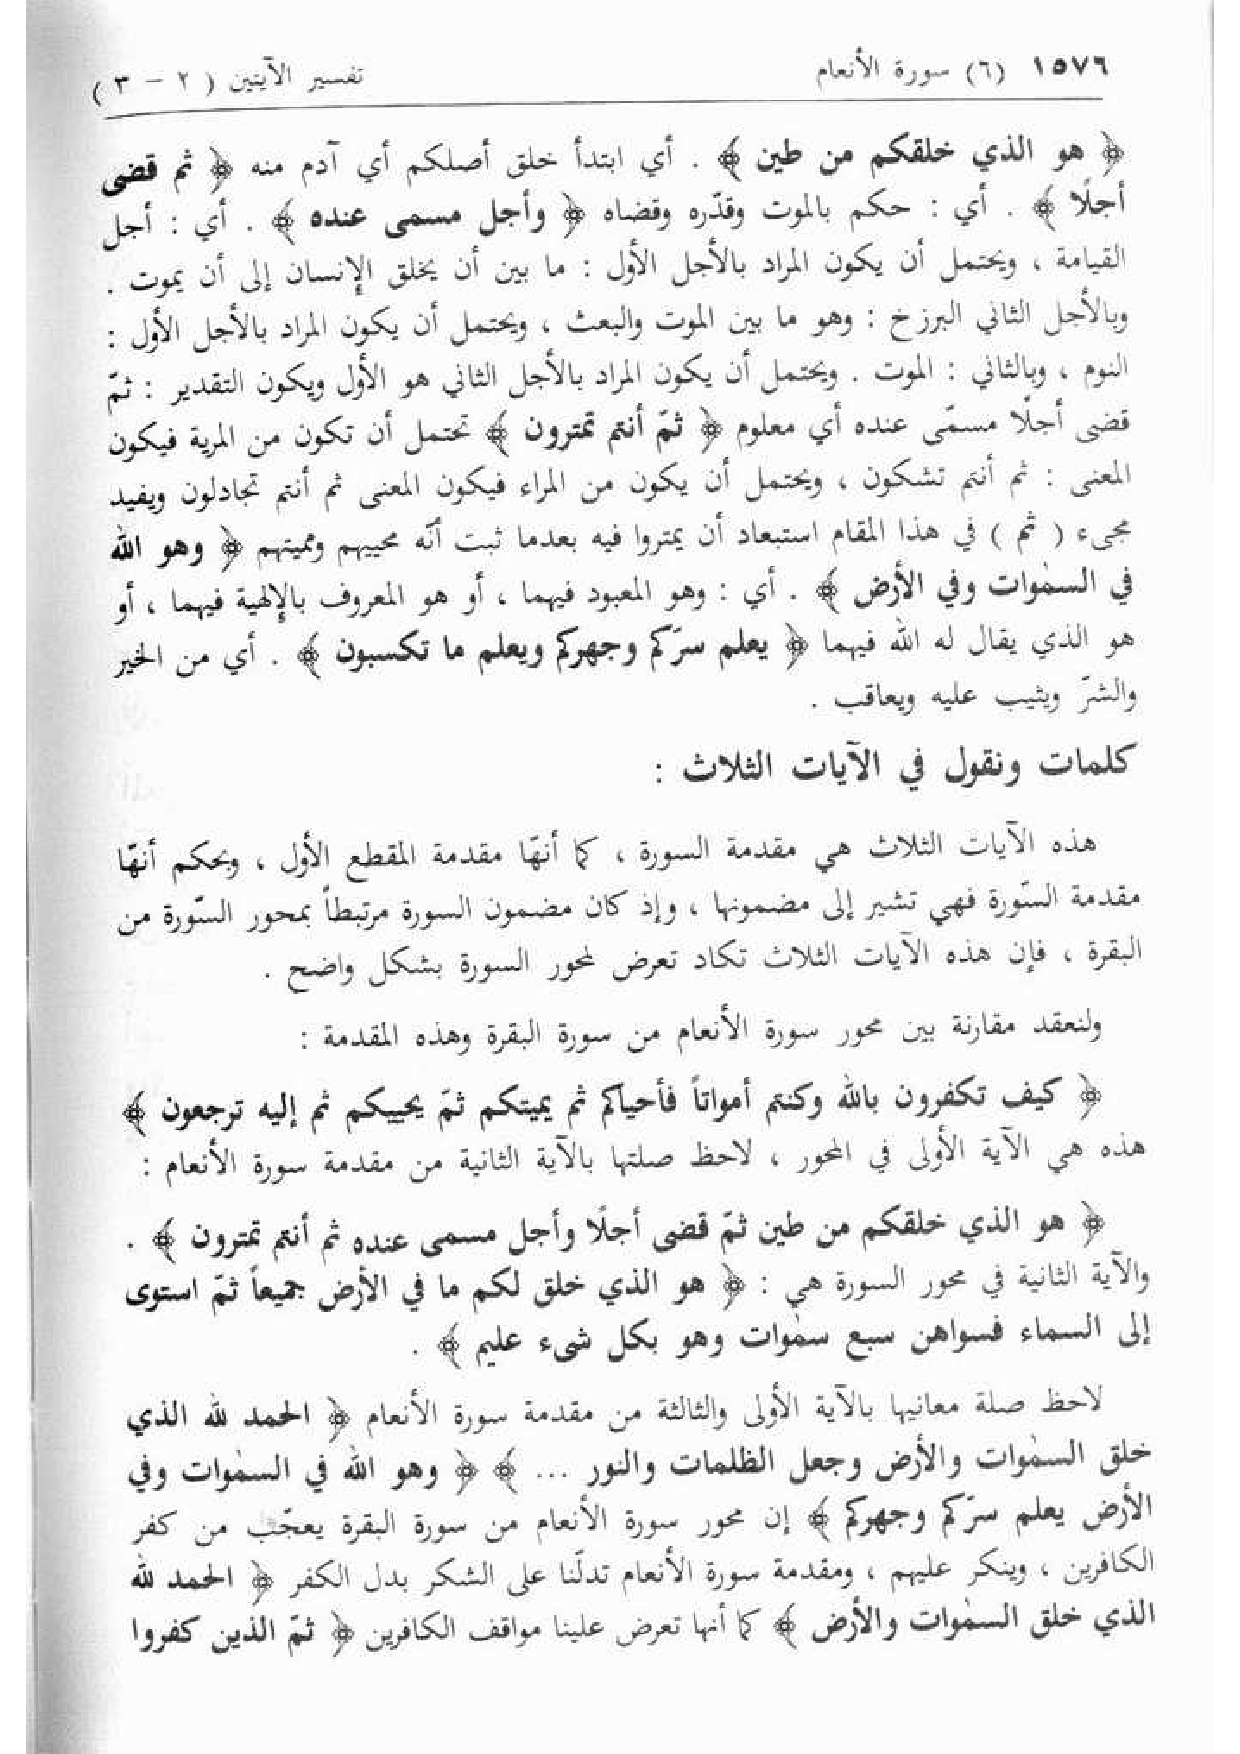 ١٥٧٦ (٦) سورة الأنعام تفسير الآيتين ( ٢ – ٣ )
﴿ هو الذي خلقكم من طين ﴾ . أي ابتدأ خلق أصلكم أي آدم منه ﴿ ثم قضى
أجلًا ﴾ . أي : حكم بالموت وقدّره وقضاه ﴿ وأجل مسمى عنده ﴾ . أي : أجل
القيامة ، ويحتمل أن يكون المراد بالأجل الأول : ما بين أن يخلق الإنسان إلى أن يموت .
وبالأجل الثاني البرزخ : وهو ما بين الموت والبعث ، ويحتمل أن يكون المراد بالأجل الأول :
النوم ، وبالثاني : الموت . ويحتمل أن يكون المراد بالأجل الثاني هو الأول ويكون التقدير : ثمّ
قضى أجلًا مسمّى عنده أي معلوم ﴿ ثمّ أنتم تمترون ﴾ تحتمل أن تكون من المرية فيكون
المعنى : ثم أنتم تشكون ، ويحتمل أن يكون من المراء فيكون المعنى ثم أنتم تجادلون ويفيد
مجىء ( ثم ) في هذا المقام استبعاد أن يمتروا فيه بعدما ثبت أنّه محييهم ومميتهم ﴿ وهو الله
في السمٰوات وفي الأرض ﴾ . أي : وهو المعبود فيهما ، أو هو المعروف بالإلهية فيهما ، أو
هو الذي يقال له الله فيهما ﴿ يعلم سرّكم وجهركم ويعلم ما تكسبون ﴾ . أي من الخير
والشرّ ويثيب عليه ويعاقب .
كلمات ونقول في الآيات الثلاث :
هذه الآيات الثلاث هي مقدمة السورة ، كما أنهّا مقدمة المقطع الأول ، وبحكم أنهّا
مقدمة السّورة فهي تشير إلى مضمونها ، وإذ كان مضمون السورة مرتبطاً بمحور السّورة من
البقرة ، فإن هذه الآيات الثلاث تكاد تعرض لمحور السورة بشكل واضح .
ولنعقد مقارنة بين محور سورة الأنعام من سورة البقرة وهذه المقدمة :
﴿ كيف تكفرون بالله وكنتم أمواتاً فأحياكم ثم يميتكم ثمّ يحييكم ثم إليه ترجعون ﴾
هذه هي الآية الأولى في المحور ، لاحظ صلتها بالآية الثانية من مقدمة سورة الأنعام :
﴿ هو الذي خلقكم من طين ثمّ قضى أجلًا وأجل مسمى عنده ثم أنتم تمترون ﴾ .
والآية الثانية في محور السورة هي : ﴿ هو الذي خلق لكم ما في الأرض جميعاً ثمّ استوى
إلى السماء فسواهن سبع سمٰوات وهو بكل شىء عليم ﴾ .
لاحظ صلة معانيها بالآية الأولى والثالثة من مقدمة سورة الأنعام ﴿ الحمد لله الذي
خلق السمٰوات والأرض وجعل الظلمات والنور ... ﴾ ﴿ وهو الله في السمٰوات وفي
الأرض يعلم سرّكم وجهركم ﴾ إن محور سورة الأنعام من سورة البقرة يعجّب من كفر
الكافرين ، وينكر عليهم ، ومقدمة سورة الأنعام تدلّنا على الشكر بدل الكفر ﴿ الحمد لله
الذي خلق السمٰوات والأرض ﴾ كما أنها تعرض علينا مواقف الكافرين ﴿ ثمّ الذين كفروا